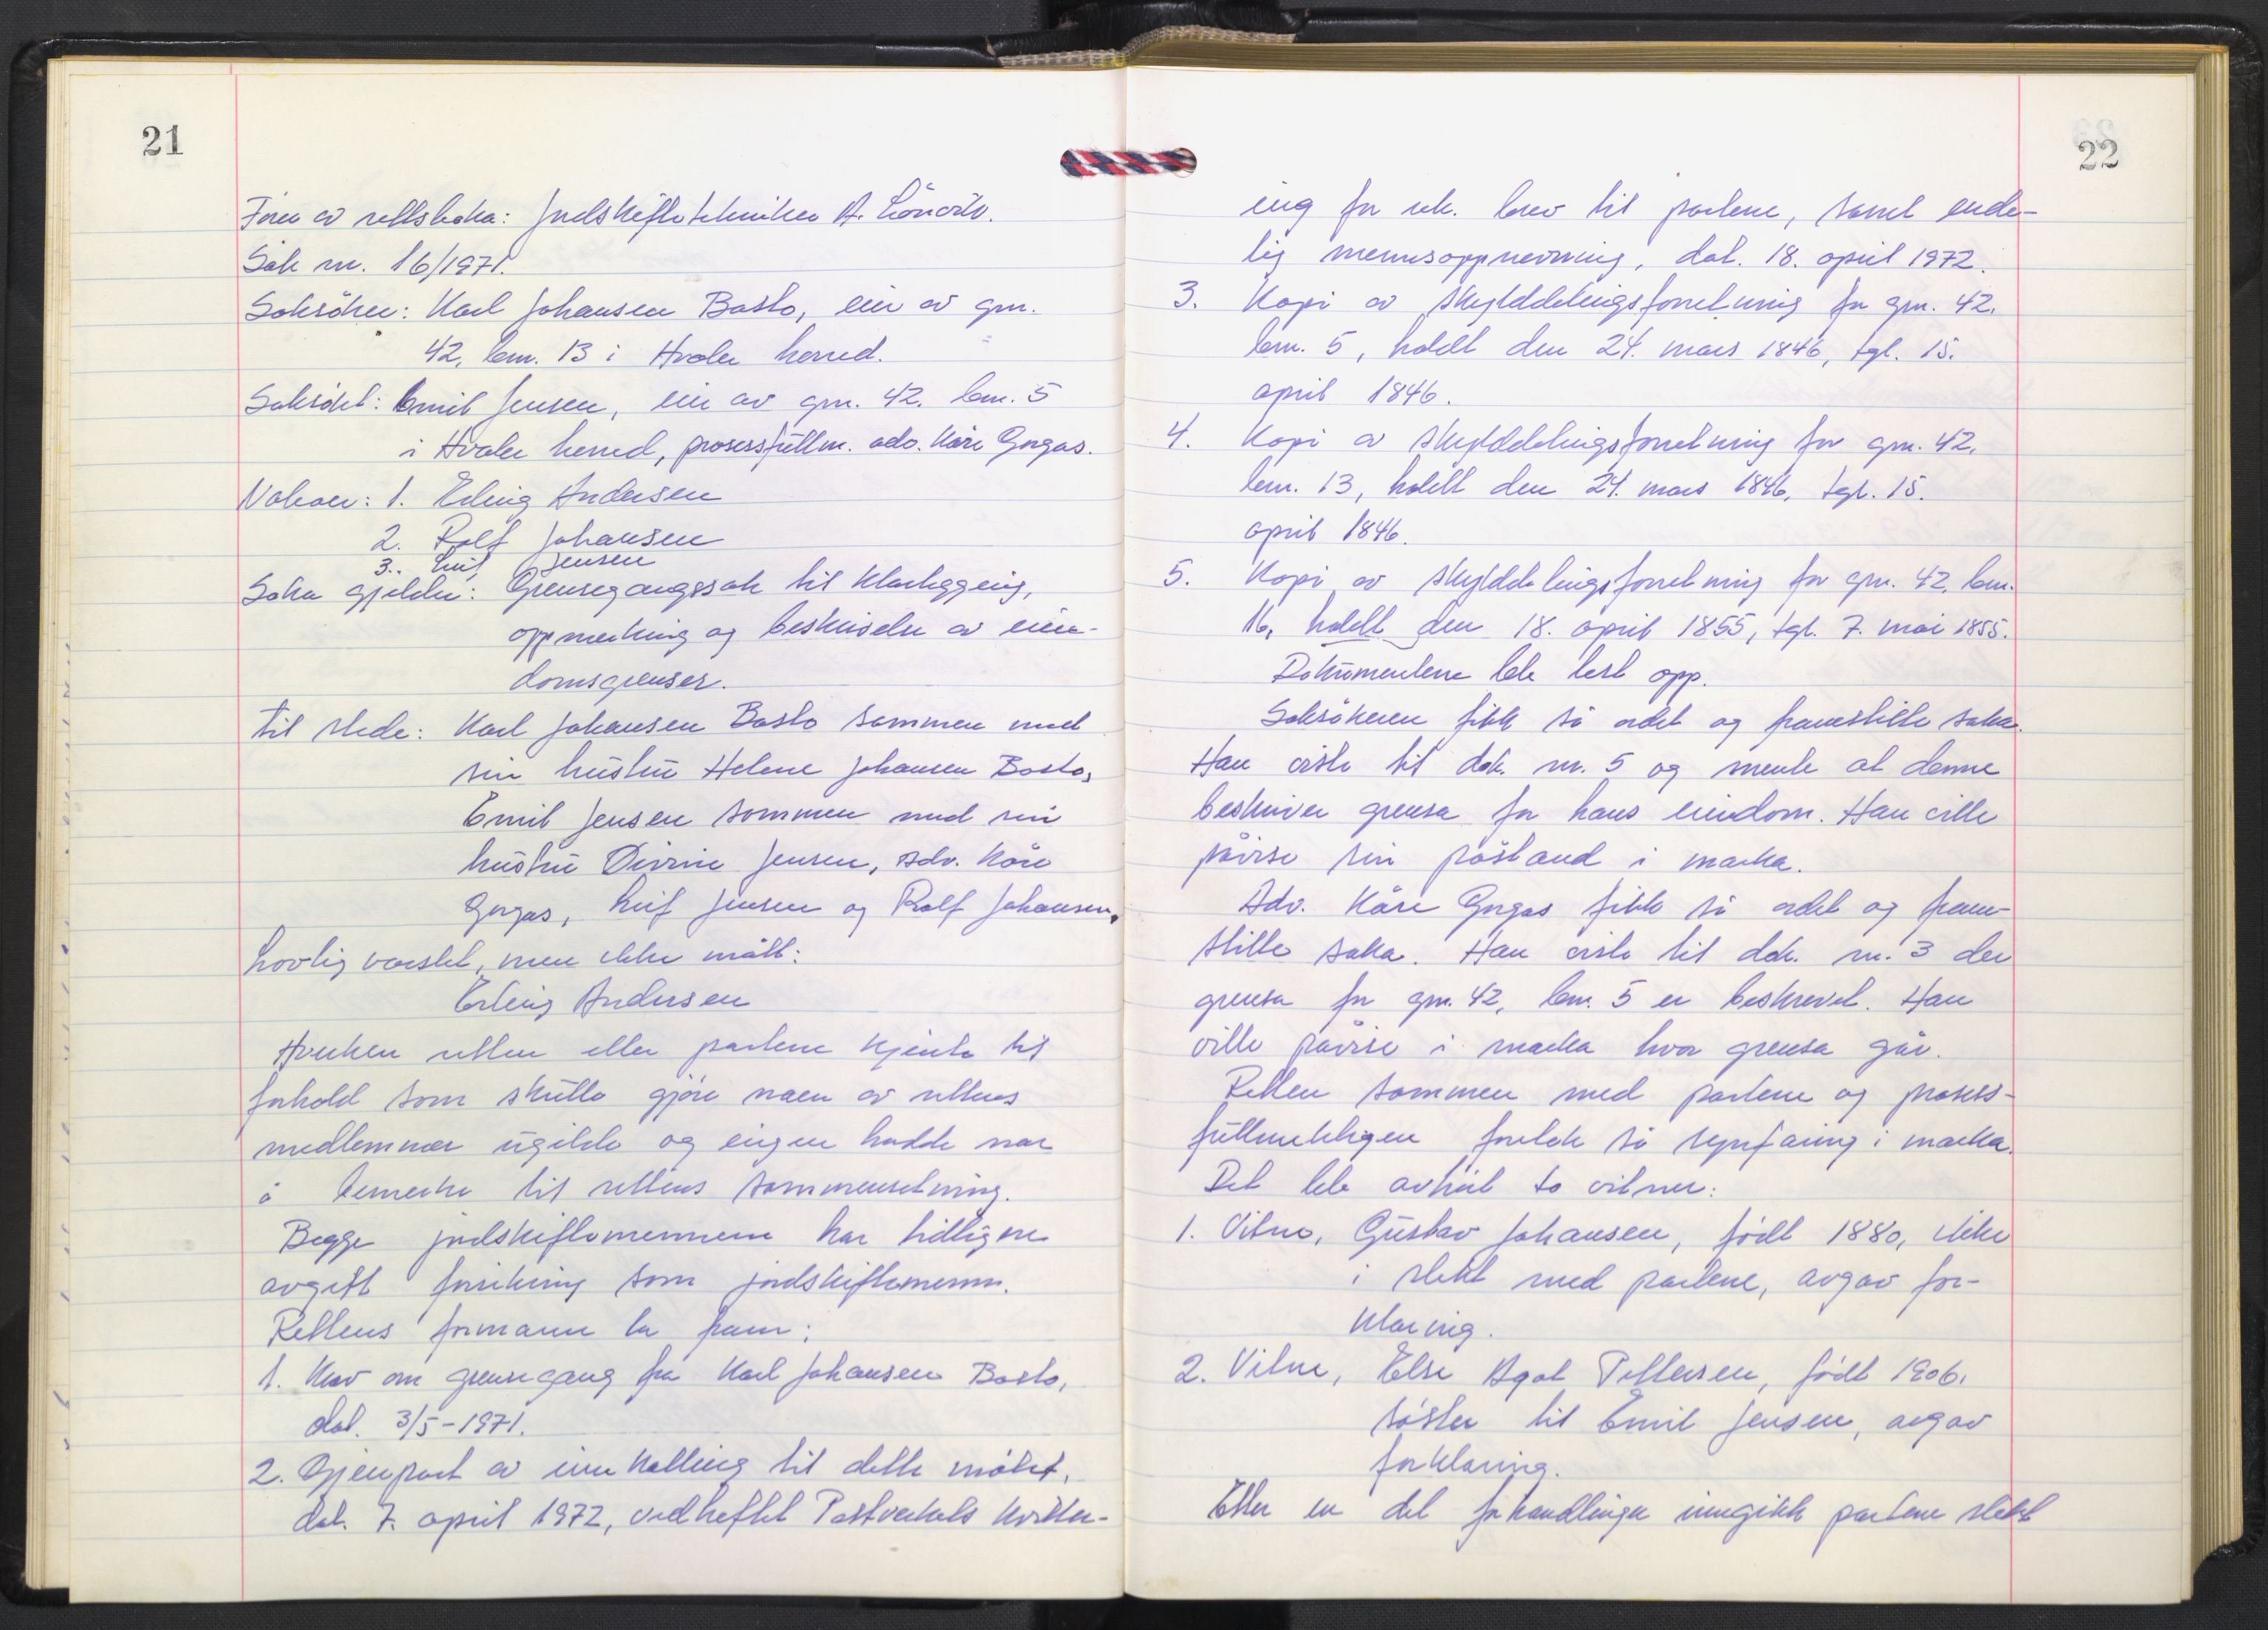 21
Fører av rettsboka: Jordskiftetekniker A. Lönvik.
Sak nr. 16/1971.
Saksöker: Karl Johansen Basto, eier av gnr.
42, bnr. 13 i Hvaler herred.
Saksökt: Emil Jensen, eier av gnr. 42. bnr. 5
i Hvaler herred, prosessfullm. adv. Kåre Gorgas.
Naboer: 1. Erling Andersen
2. Rolf Johansen
3. Leif Jensen
Saka gjelder: Grensegangssak til klarlegging,
oppmerking og beskrivelse av eien-
domsgrenser.
Til stede: Karl Johansen Basto sammen med
sin hustru Helene Johansen Basto,
Emil Jensen sammen med sin
hustru Jensen, adv. Kåre
Gorgas, Leif Jensen og Rolf Johansen.
Lovlig varslet, men ikke mött:
Erling Andersen
Hverken retten eller partene kjente til
forhold som skulle gjöre noen av rettens
medlemmer ugilde og eingen hadde noe
å bemerke til rettens sammensetning.
Begge jordskiftemennene har tidligere
avgitt forsikring som jordskiftemenn.
Rettens formann la fram:
1. Krav om grensegang fra Karl Johansen Basto,
dat. 3/5-1971.
2. Gjenpart av innkalling til dette mötet,
dat. 7. april 1972, vedheftet Postverkets kvitter-
22
ing for rek. brev til partene, samt ende-
lig mennsoppnevning, dat. 18. april 1972.
3. Kopi av skylddelingsforretning for gnr. 42,
bnr. 5, holdt den 24. mars 1846, tgl. 15.
april 1846.
4. Kopi av skylddelingsforretning for gnr. 42,
bnr. 13, holdt den 24. mars 1846, tgl. 15.
april 1846.
5. Kopi av skylddelingsforretning for gnr. 42, bnr.
16, holdt den 18. april 1855, tgl. 7. mai 1855.
Dokumentene ble lest opp.
Saksökeren fikk så ordet og framstilte saka.
Han viste til dok. nr. 5 og mente at denne
beskriver grensa for hans eiendom. Han ville
påvise sin påstand i marka.
Adv. Kåre Gorgas fikk så ordet og fram-
stilte saka. Han viste til dok. nr. 3 der
grensa for gnr. 42, bnr. 5 er beskrevet. Han
ville påvise i marka hvor grensa går.
Retten sammen med partene og prosess-
fullmektigen foretok så synfaring i marka.
Det ble avhört to vitner:
1. Vitne, Gustav Johansen, födt 1880, ikke
i slekt med partene, avgav for-
klaring.
2. Vitne, Else Agat Pettersen, födt 1906.
söster til Emil Jensen, avgav
forklaring.
Etter en del forhandlinger inngikk partene slikt